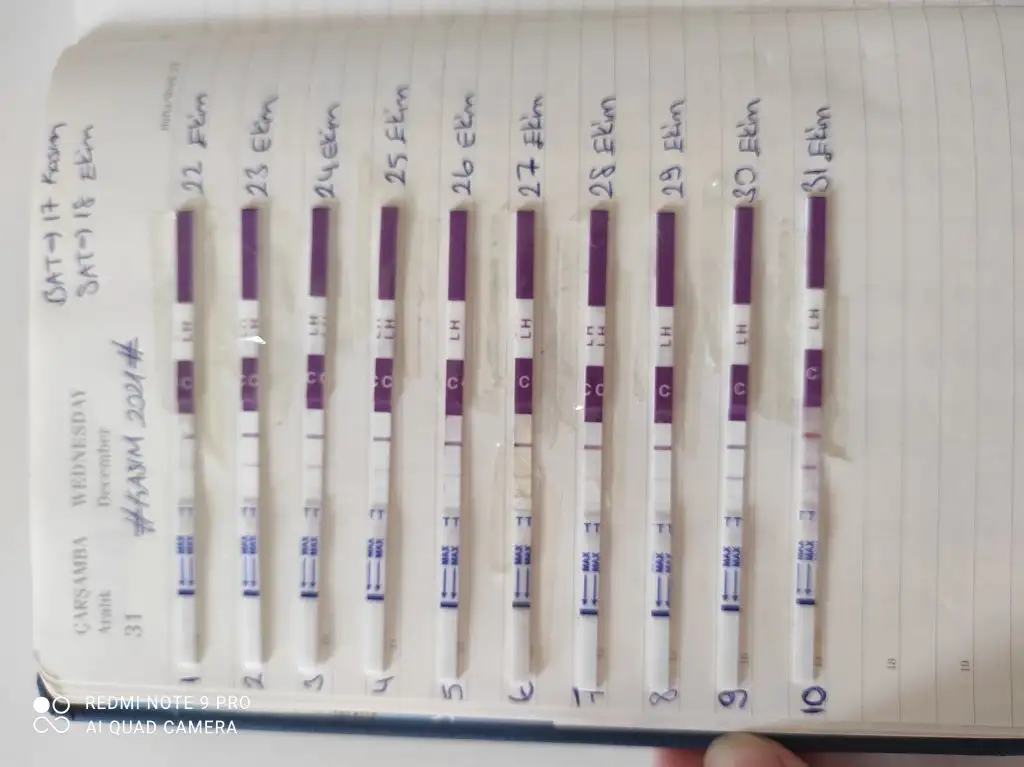 BAT→ 17 Kasım
SAT→ 18 Ekim
#KASIM 2021#
ÇARŞAMBA WEDNESDAY
Aralık December
31
22 Ekim
23 Ekim
24 Ekim
25 Ekim
26 Ekim
27 Ekim
28 Ekim
29 Ekim
30 Ekim
31 Ekim
LH
LH
LH
LH
LH
LH
LH
LH
LH
LH
C
CC
C
CC
C
C
CC
C
C
C
MAX
MAX
MAX
MAX
MAX
MAX
MAX
MAX
MAX
MAX
1
2
3
4
5
6
7
8
9
10
18
19
REDMI NOTE 9 PRO
AI QUAD CAMERA